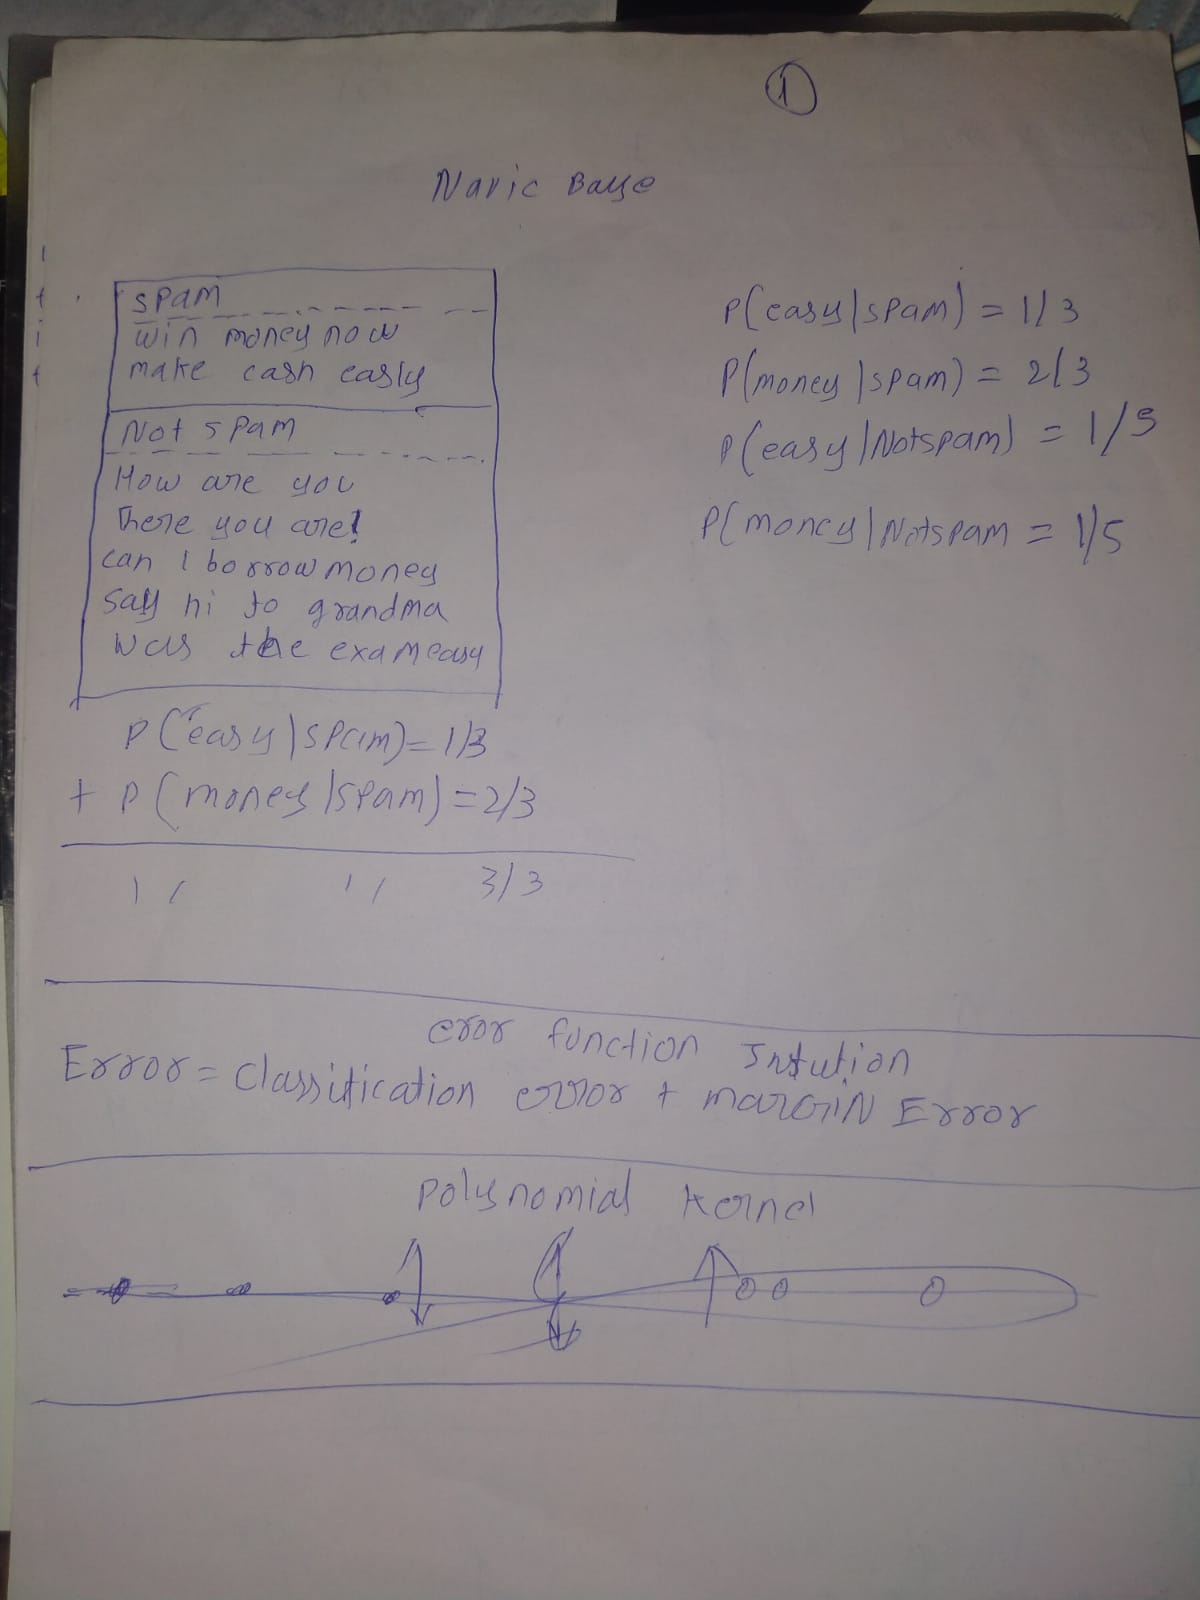 1
Navic Baye
spam
win money now
make cash easly
Not spam
How are you
There you are!
can I borrow money
say hi to grandma
was the exam easy
P(easy|spam) = 1/3
P(money|spam) = 2/3
P(easy|Notspam) = 1/5
P(money|Notspam = 1/5
P(easy|spam) = 1/3
+ P(money|spam) = 2/3
3/3
eror function Instution
Error = Classification error + margin Error
Polynomial Kernel